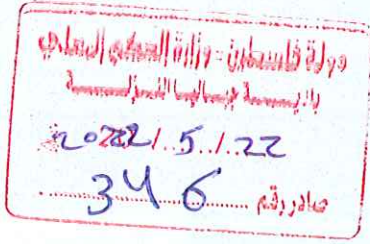 دولة فلسطين - وزارة الحكم المحلي
بلديـــــة عبسان الكبيـــرة
2022/5/22
صادر رقم 346